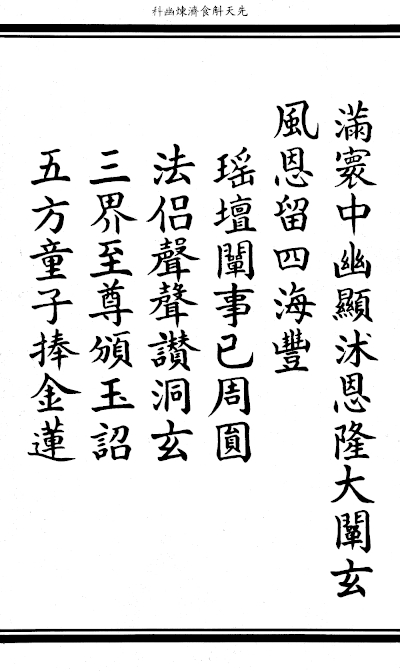 先天斛食濟煉幽科
滿寰中幽顯沭恩隆大闡玄
風恩留四海豐
瑤壇闡事已周圓
法侶聲聲讚洞玄
三界至尊頒玉詔
五方童子捧金蓮